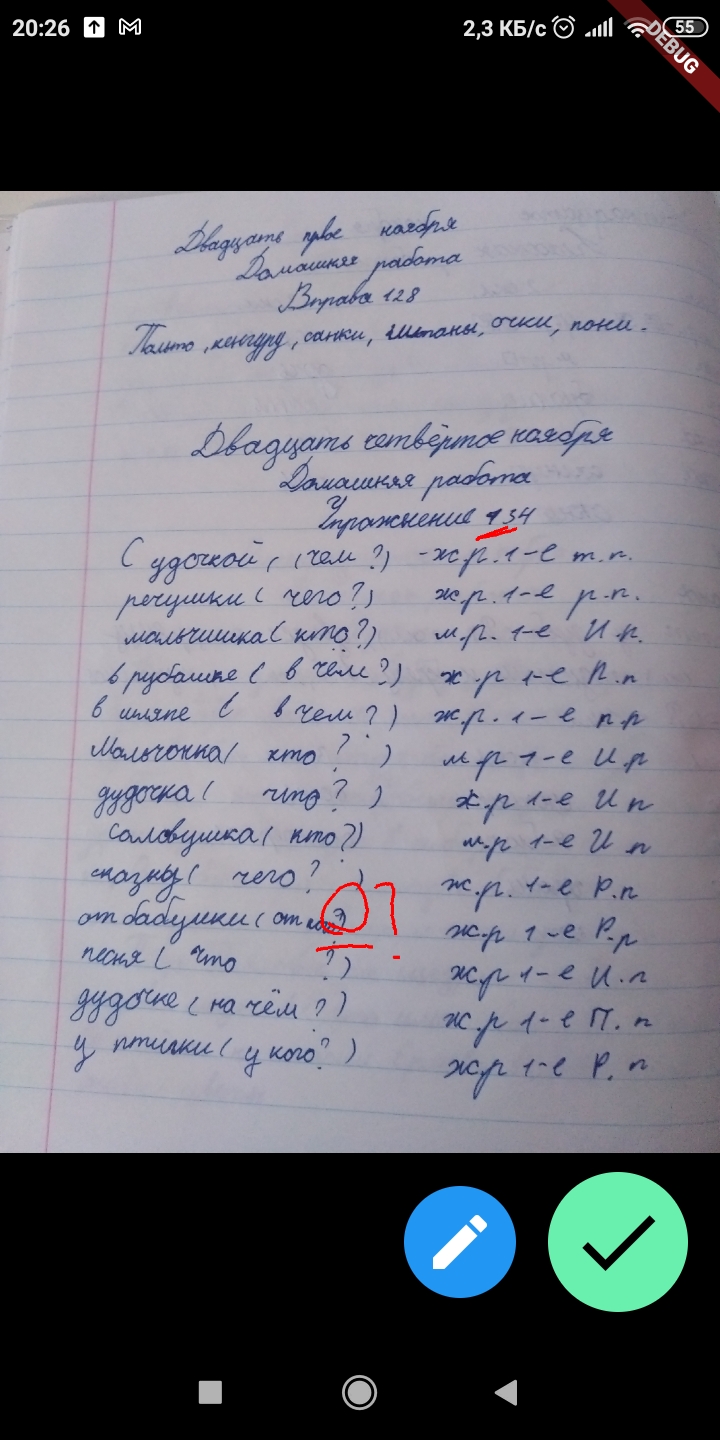 20:26 2,3 КБ/с 55
DEBUG
Двадцать првое ноября
Домашняя работа
Вправа 128
Пальто, кенгуру, санки, штаны, очки, пони.
Двадцать четвёртое ноября
Домашняя работа
Упражнение 134
С удочкой, (чем?) -ж.р. 1-е т.п.
речушки (чего?) ж.р. 1-е р.п.
мальчишка (кто?) м.р. 1-е И.п.
в рубашке (в чём?) ж.р 1-е П.п
в шляпе (в чем?) ж.р. 1-е п.р
Мальчонка (кто?) м.р 1-е И.р
дудочка (что?) ж.р 1-е И п
Соловушка (кто?) м.р 1-е И.п
(чего?) ж.р. 1-е Р.п
от бабушки (от ?) ? ж.р 1-е Р.р
песня (что ?) ж.р 1-е И.п
дудочке (на чём?) ж.р 1-е П.п
у птички (у кого?) ж.р 1-е Р.п